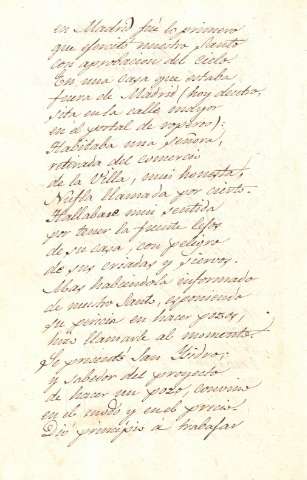 en Madrid fué lo primero
que ejercitó nuestro Santo
con aprobacion del cielo.
En una casa que estaba
fuera de Madrid (hoy dentro,
sita en la calle mayor
en el portal de ropero);
Habitaba una señora,
retirada del comercio
de la Villa, mui honesta,
Nufla llamada por cierto.
Hallabase mui sentida
por tener la fuente lejos
de su casa, con peligro
de sus criadas y siervos.
Mas habiendola informado
de nuestro Santo, exponiendo
su pericia en hacer pozos,
hizo llamarle al momento.
Se presentó San Ysidro,
y sabedor del proyecto
de hacer un pozo, convino
en el modo y en el precio.
Dió principio a trabajar